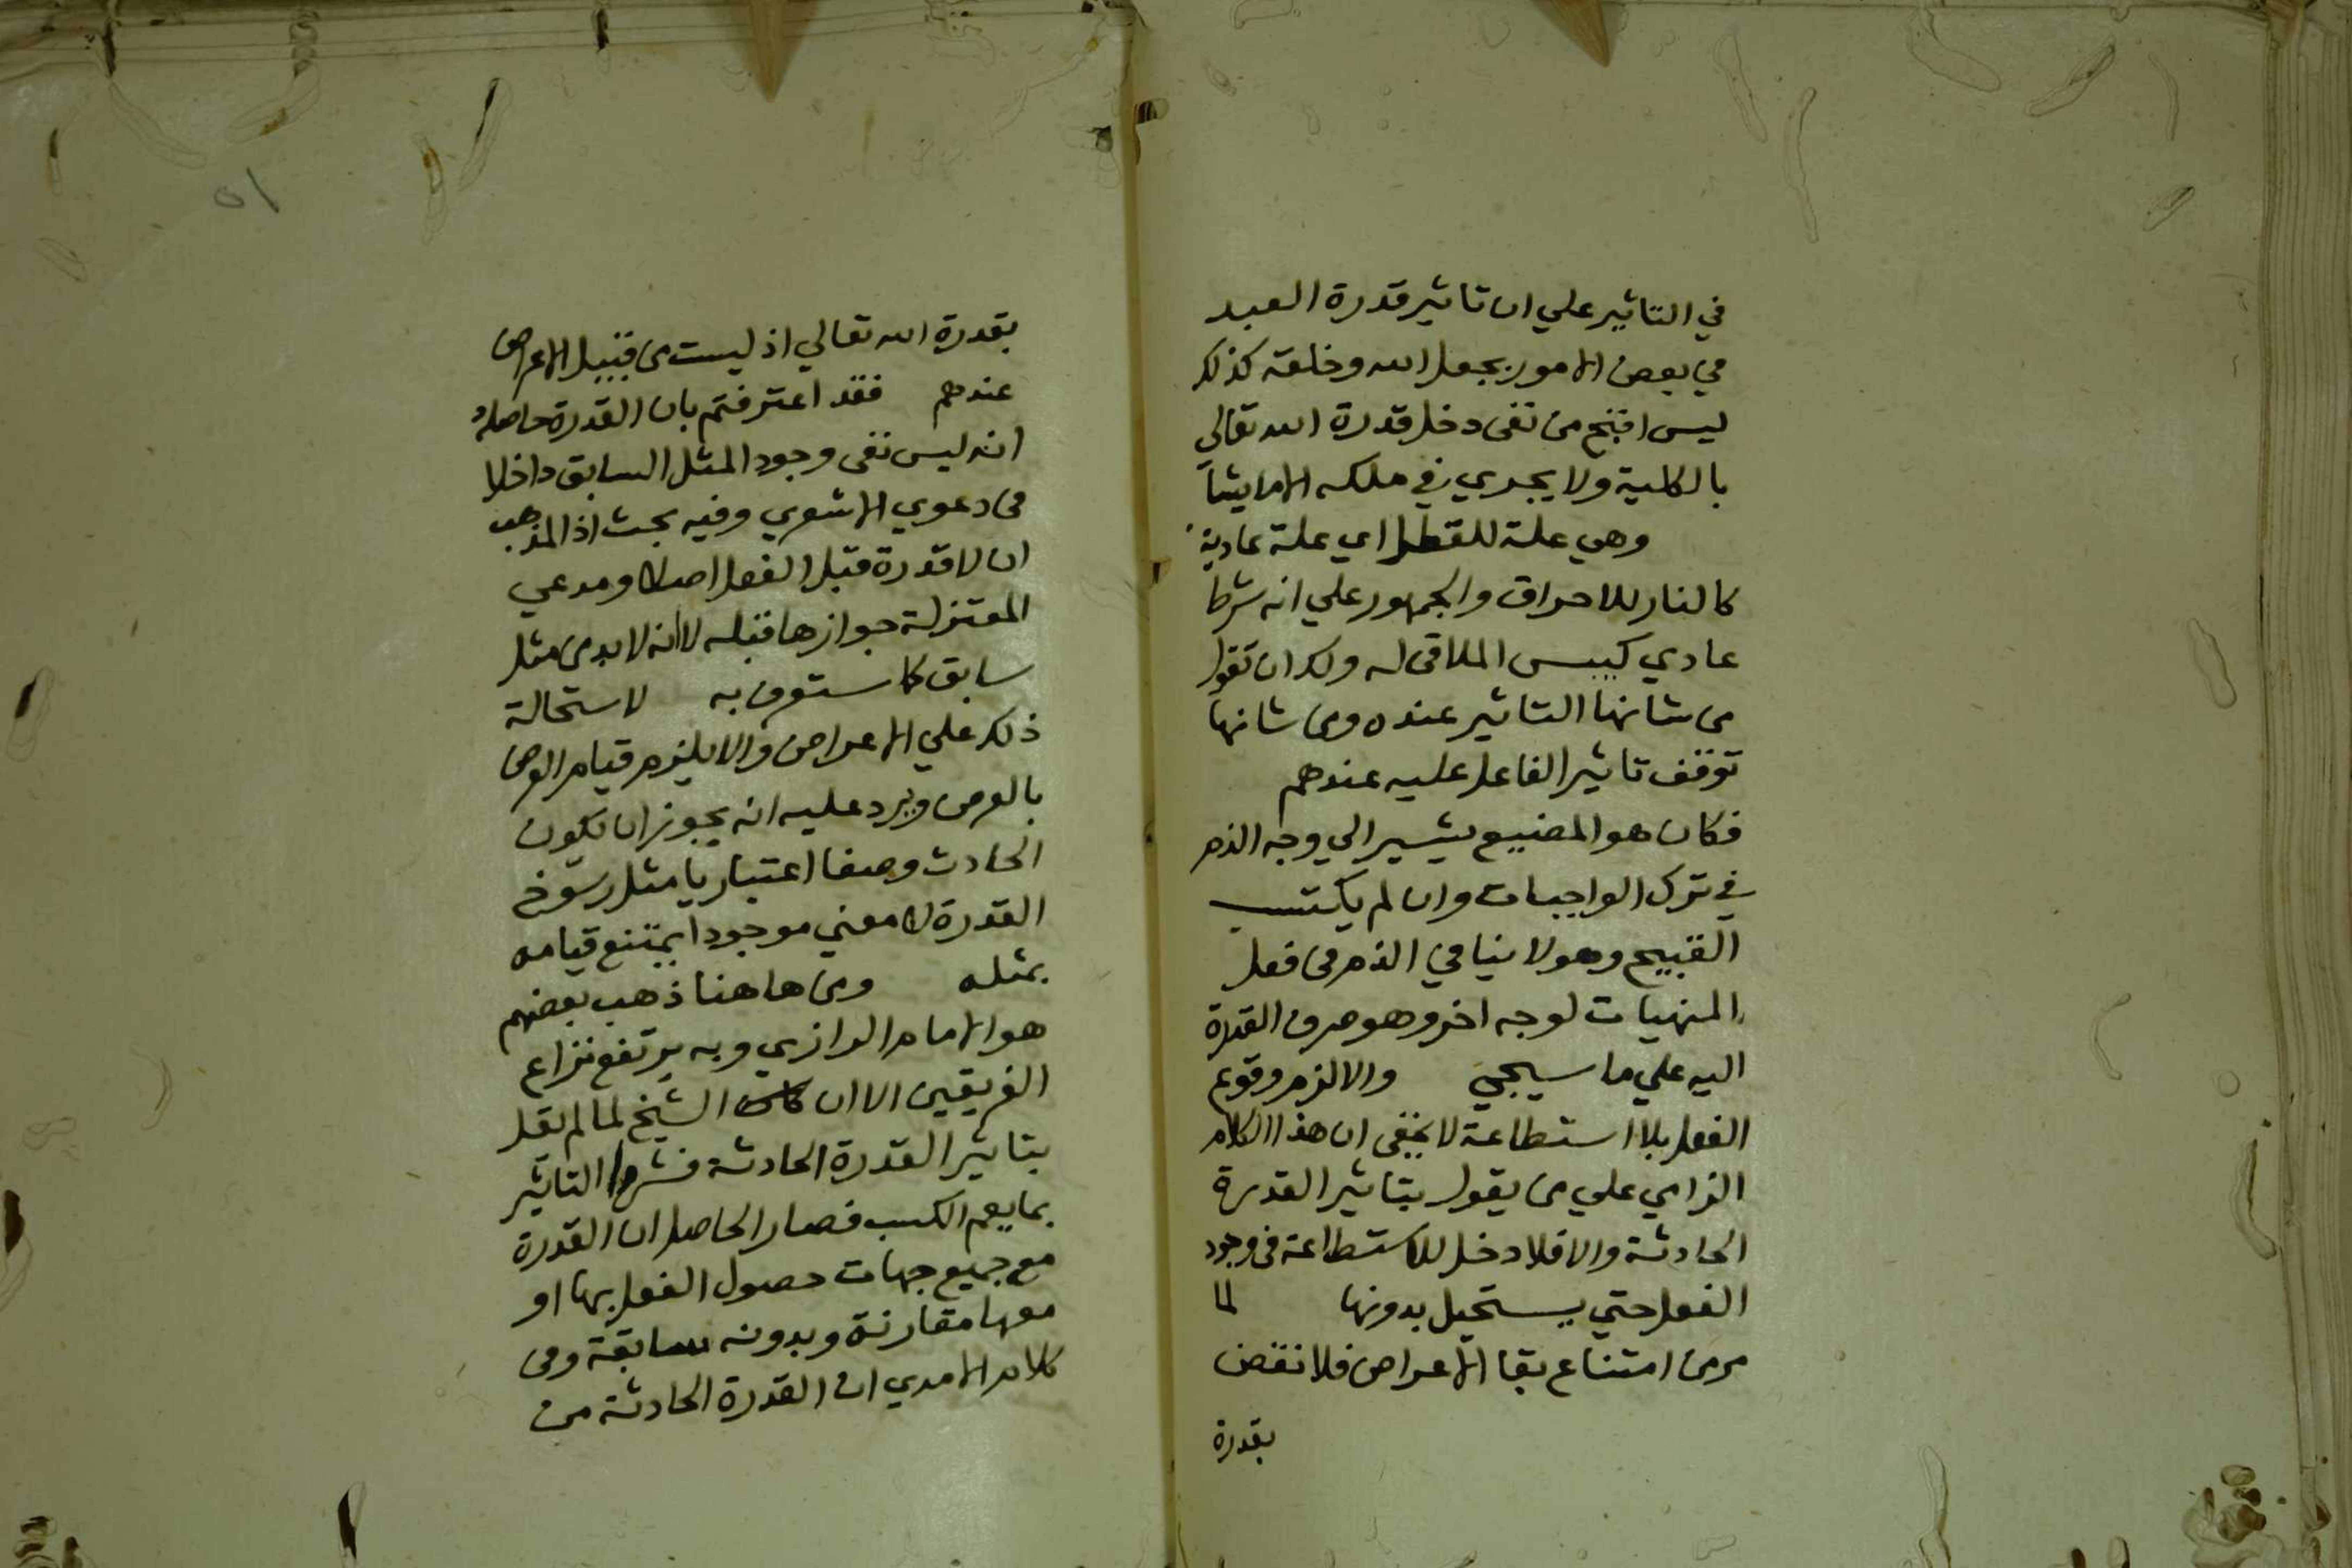 في التاثير علي ان تاثير قدرة العبد
في بعض الامور بجعل الله وخلقه كذلك
ليس اقبح من نفى دخل قدرة الله تعالى
بالكلية ولا يجري في ملكه الا ما يشآ
وهي علة للفعل اي علة عادية
كالنار للاحراق والجمهور علي انه شرط
عادي كيبس الملاقى له ولك ان تقول
من شانها التاثير عنده ومن شانها
توقف تاثير الفاعل عليه عندهم
فكان هو المضيع يشير الي وجه الذم
في ترك الواجبات وان لم يكتسب
القبيح وهو لا ينافي الذم في فعل
المنهيات لوجه اخر وهو صرف القدرة
اليه علي ما سيجي والا لزم وقوع
الفعل بلا استطاعة لا يخفى ان هذا الكلام
الزامي علي من يقول بتاثير القدرة
الحادثة والا فلا دخل للاستطاعة في وجود
الفعل حتي يستحيل بدونها لما
مر من امتناع بقا الاعراض فلا نقض
بقدرة
٥١
بقدرة الله تعالي اذ ليست من قبيل الاعراض
عندهم فقد اعترفتم بان القدرة حاصله
انه ليس نفى وجود المثل السابق داخلا
في دعوي الاشعري وفيه بحث اذ المذهب
ان لا قدرة قبل الفعل اصلا ومدعي
المعتزلة جوازها قبله لا انه لا بد من مثل
سابق كما ستعرف به لاستحالة
ذلك علي الاعراض والا يلزم قيام العرض
بالعرض ويرد عليه انه يجوز ان يكون
الحادث وصفا اعتباريا مثل رسوخ
القدرة لا معني موجودا يمتنع قيامه
بمثله ومن هاهنا ذهب بعضهم
هو الامام الرازي وبه يرتفع نزاع
الفريقين الا ان الشيخ لما لم يقل
بتاثير القدرة الحادثة فسر التاثير
بما يعم الكسب فصار الحاصل ان القدرة
مع جميع جهات حصول الفعل بها او
معها مقارنة وبدونه سابقة وفى
كلام الامدي ان القدرة الحادثة من